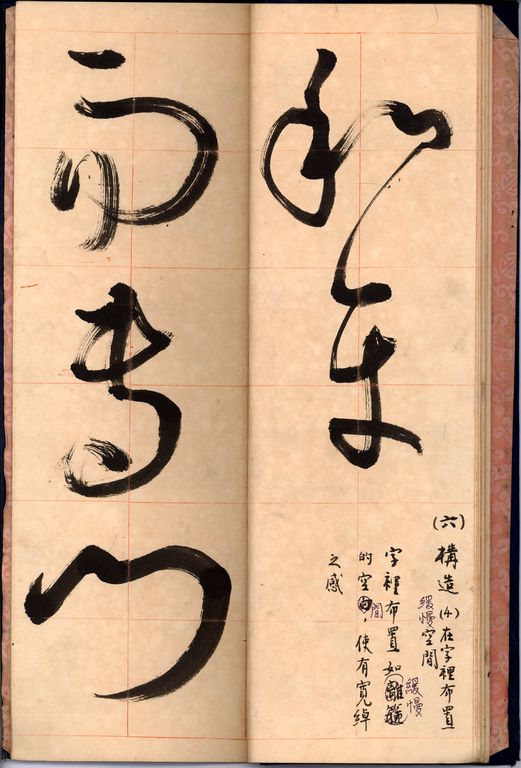 和
(六)構造(4)在字裡布置
緩慢空間
字裡布置如緩慢
的空間，使有寬綽
之感
門